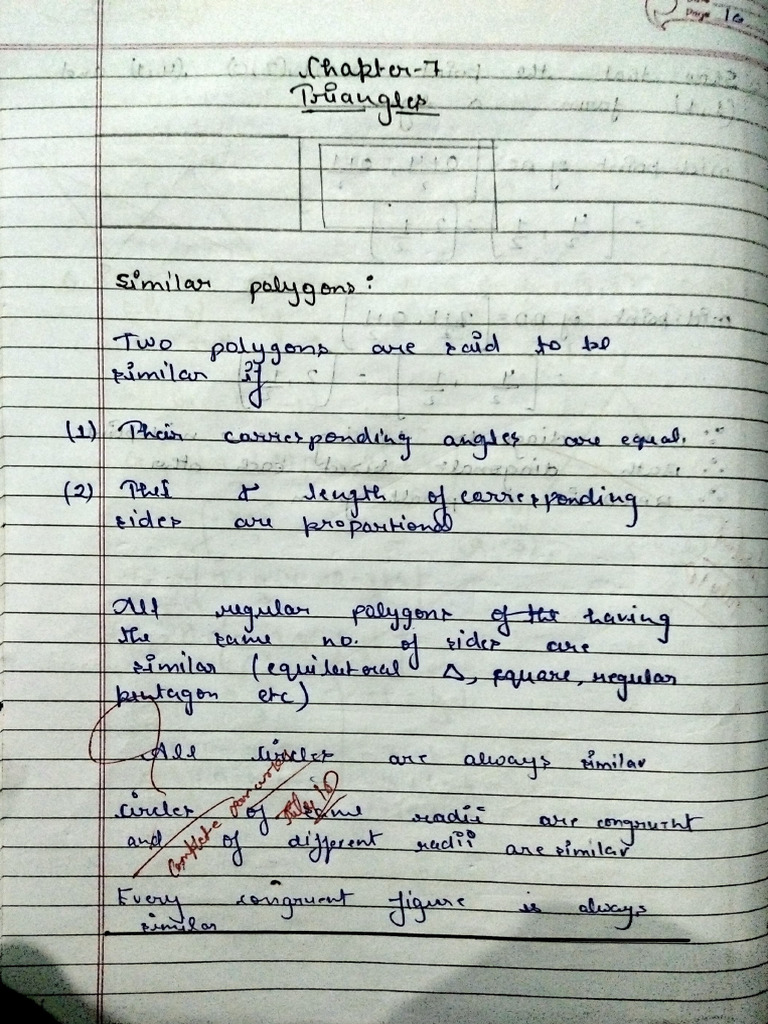 Page 10
Chapter-7
Triangles
Similar polygons:
Two polygons are said to be
similar if
(1) Their corresponding angles are equal.
(2) The & length of corresponding
sides are proportional
All regular polygons of the having
the same no. of sides are
similar (equilateral Δ, square, regular
pentagon etc)
All circles are always similar
Circles of same radii are congruent
and of different radii are similar
Complete
Every congruent figure is always
similar